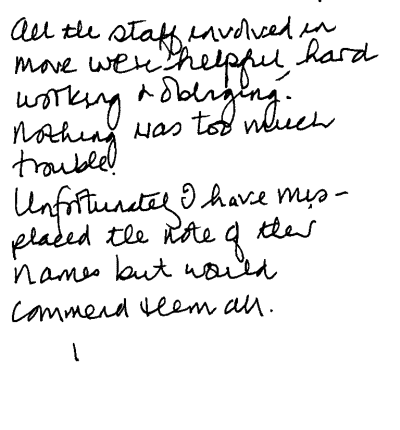 All the staff involved in
move were helpful, hard
working & obliging.
Nothing was too much
trouble.
Unfortunately I have mis-
placed the note of their
names but would
commend them all.